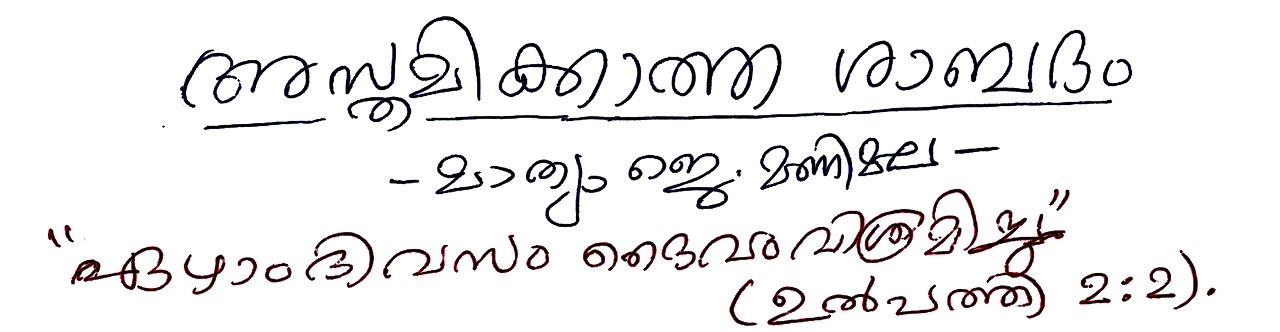 അസ്തമിക്കാത്ത ശാബ്ദം
- മാത്യു ജെ. മണിമല -
"ഏഴാംദിവസം ദൈവം വിശ്രമിച്ചു"
(ഉൽപത്തി 2:2).